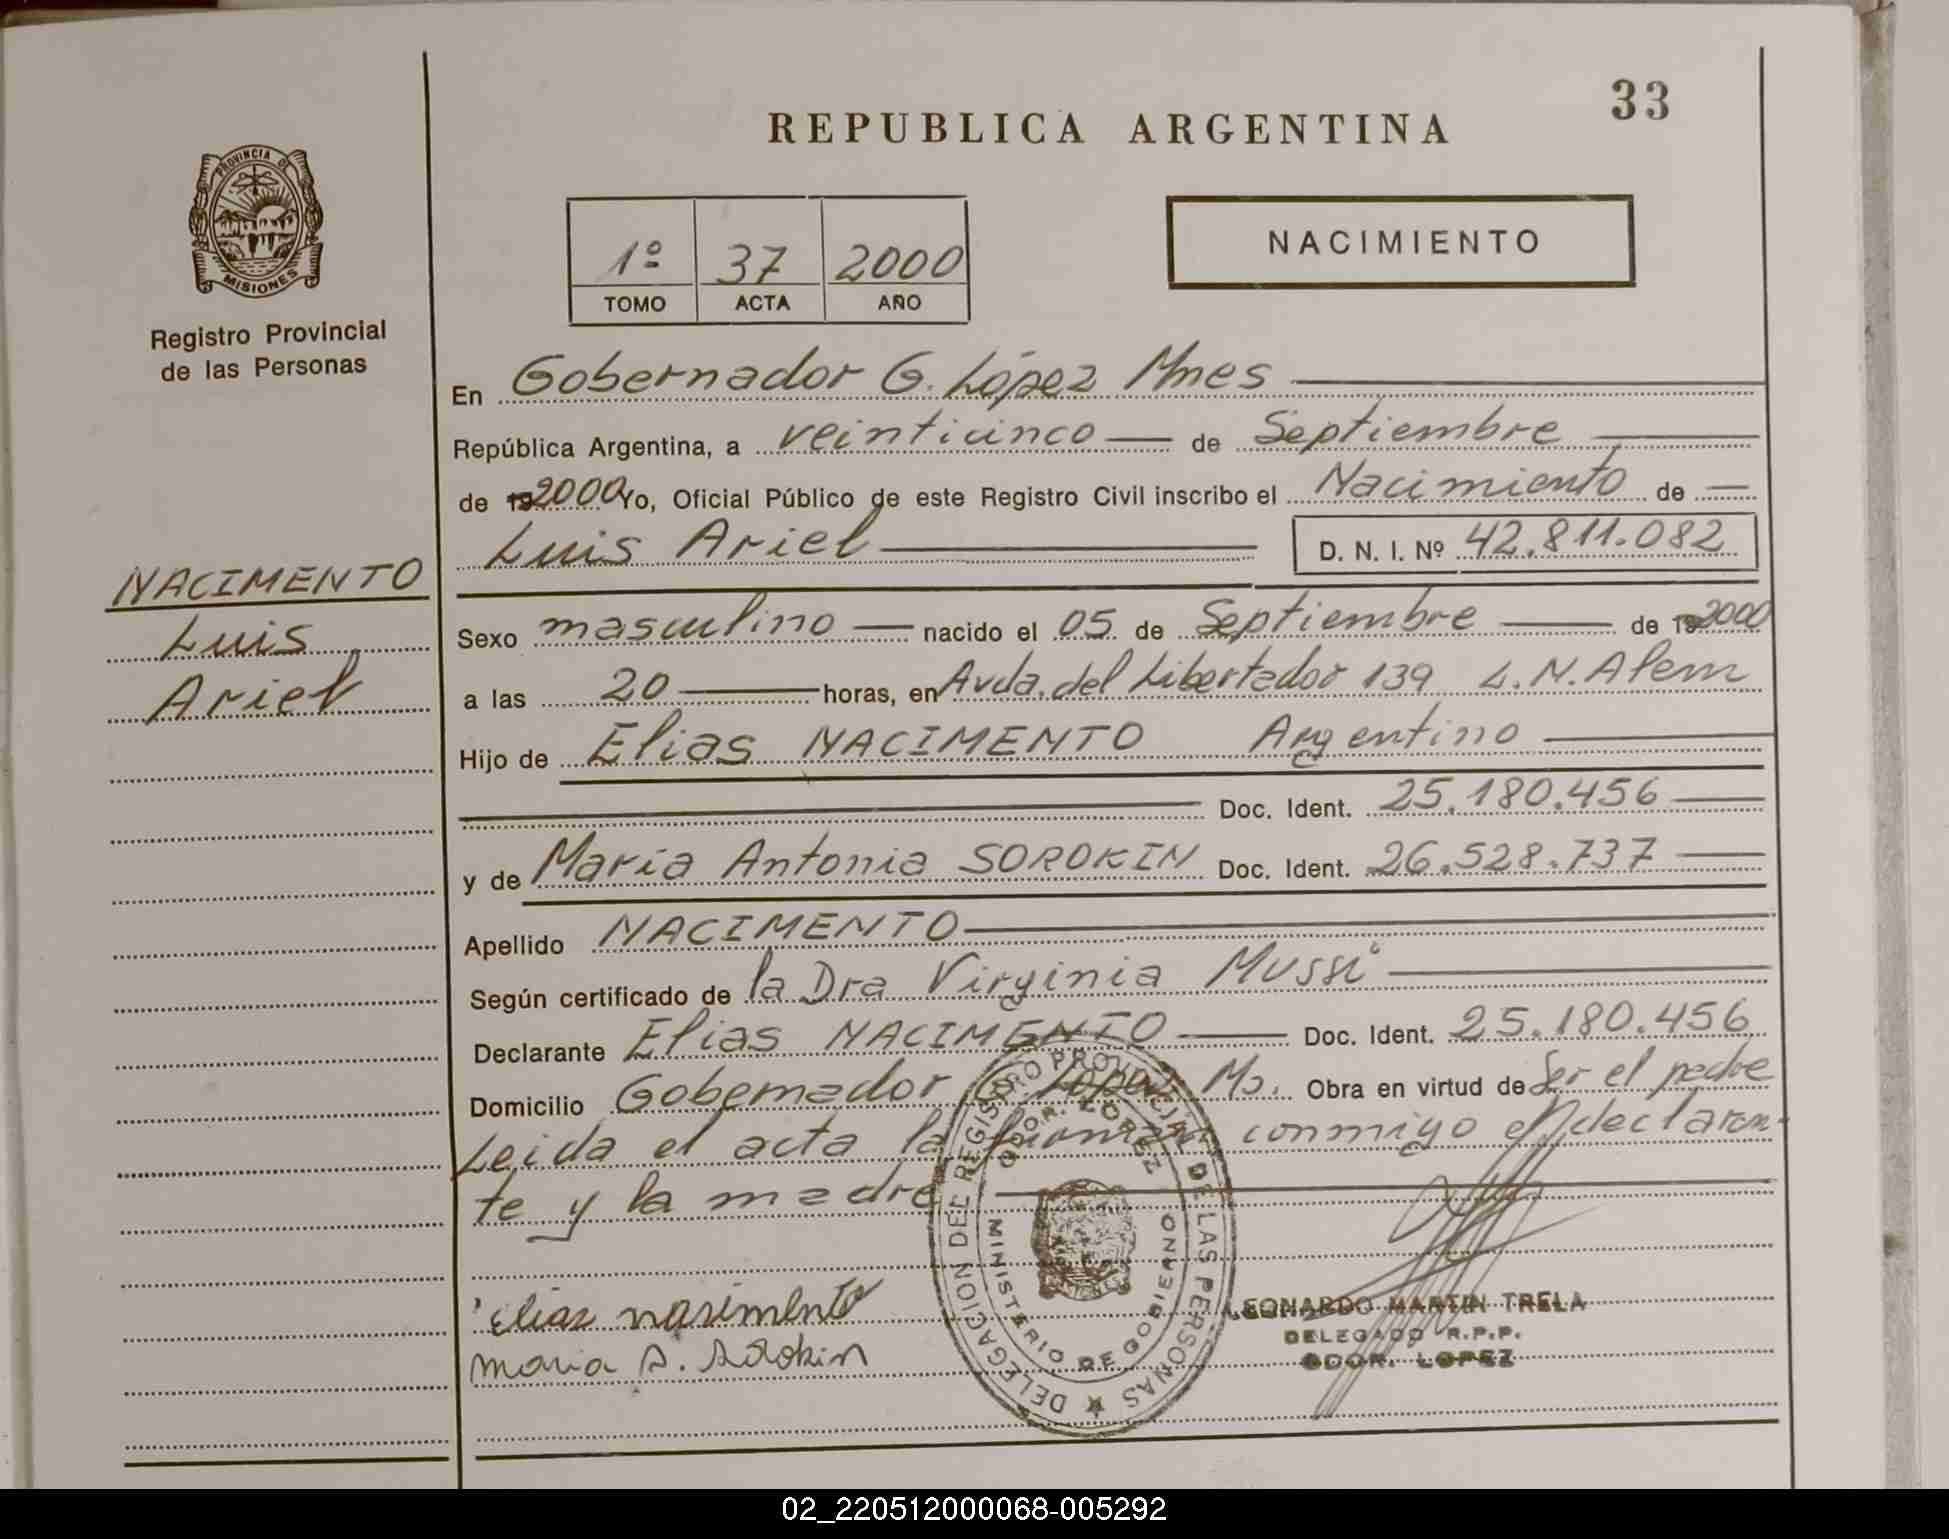 33
REPUBLICA ARGENTINA
PROVINCIA DE
MISIONES
Registro Provincial
de las Personas
1º 37 2000
TOMO ACTA AÑO
NACIMIENTO
En Gobernador G. López Mnes
República Argentina, a veinticinco de Septiembre
de 192000 Yo, Oficial Público de este Registro Civil inscribo el Nacimiento de
Luis Ariel D. N. I. Nº 42.811.082
NACIMENTO
Luis
Ariel
Sexo masculino nacido el 05 de Septiembre de 192000
a las 20 horas, en Avda. del Libertador 139 L.N.Alem
Hijo de Elias NACIMENTO Argentino
Doc. Ident. 25.180.456
y de María Antonia SOROKIN Doc. Ident. 26.528.737
Apellido NACIMENTO
Según certificado de la Dra Virginia Mussi
Declarante Elias NACIMENTO Doc. Ident. 25.180.456
Domicilio Gobernador G. López Ms. Obra en virtud de Ser el padre
Leida el acta la firman conmigo el declaran-
te y la madre
Elias nasimento
Maria A. Sorokin
DELEGACION DEL REGISTRO PROVINCIAL DE LAS PERSONAS
GDOR. LOPEZ
MINISTERIO DE GOBIERNO
LEONARDO MARTIN TRELA
DELEGADO R.P.P.
GDOR. LOPEZ
02_220512000068-005292